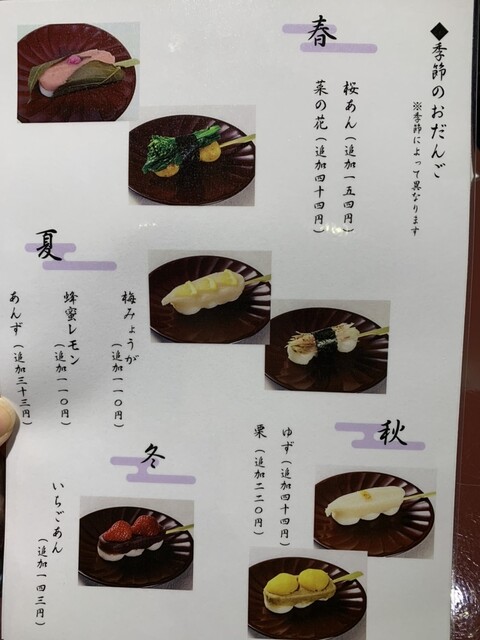 ◆季節のおだんご
※季節によって異なります
春
桜あん(追加一五四円)
菜の花(追加四十四円)
夏
梅みょうが
(追加一一〇円)
蜂蜜レモン
(追加一一〇円)
あんず(追加三十三円)
秋
ゆず(追加四十四円)
栗(追加二二〇円)
冬
いちごあん
(追加一四三円)